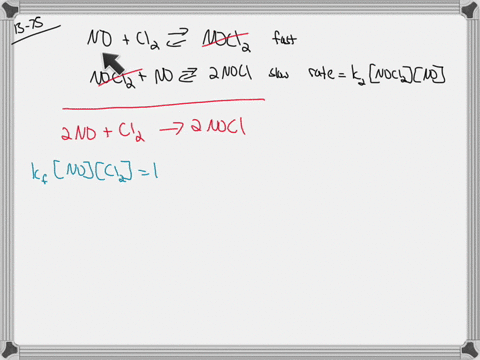 13-75
NO + Cl₂ ⇌ NOCl₂ fast
NOCl₂ + NO ⇌ 2NOCl slow rate = k₂[NOCl₂][NO]
2NO + Cl₂ → 2NOCl
k_f [NO][Cl₂] = 1